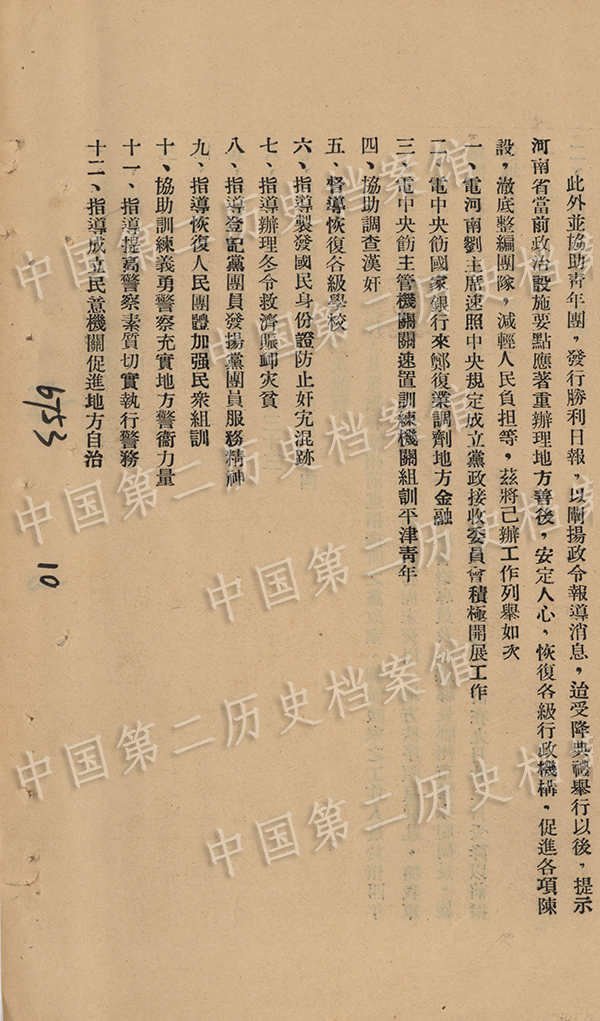 此外並協助青年團，發行勝利日報，以闡揚政令報導消息，迨受降典禮舉行以後，提示
河南省當前政治設施要點應著重辦理地方善後，安定人心，恢復各級行政機構，促進各項陳
設，澈底整編團隊，減輕人民負担等，茲將已辦工作列舉如次
一、電河南劉主席速照中央規定成立黨政接收委員會積極開展工作
二、電中央飭國家銀行來鄭復業調劑地方金融
三、電中央飭主管機關關速置訓練機關組訓平津靑年
四、協助調查漢奸
五、督導恢復各級學校
六、指導製發國民身份證防止奸宄混跡
七、指導辦理冬令救濟賑卹灾貧
八、指導登記黨團員發揚黨團員服務精神
九、指導恢復人民團體加强民衆組訓
十、協助訓練義勇警察充實地方警衛力量
十一、指導提高警察素質切實執行警務
十二、指導成立民意機關促進地方自治
6753
10
中国第二历史档案馆
中国第二历史档案馆
中国第二历史档案馆
中国第二历史档案馆
中国第二历史档案馆
中国第二历史档案馆